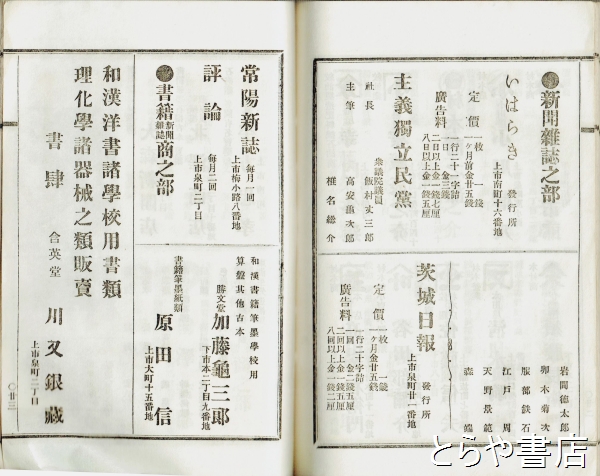 新聞雜誌之部
いはらき
上市南町十六番地
發行所
定價
一枚一錢
一ヶ月前金廿五錢
廣告料
一行二十一字詰
一日金三錢
二日以上金一錢七厘
八日以上金一錢五厘
主義獨立民黨
社長
衆議院議員
飯村丈三郎
主筆
高安龜次郎
椎名総介
茨城日報
上市泉町廿一番地
發行所
定價
一枚一錢
一ヶ月金廿五錢
廣告料
一行二十字詰
一回金二錢五厘
二回以上金一錢五厘
八回以上金一錢二厘
岩間德太郎
卯木菊次
服部鉄石
江戸周
天野景範
森
常陽新誌
每月一回
上市梅小路八番地
評論
每月二回
上市泉町二丁目
書籍新聞雜誌商之部
和漢書籍筆墨學校用
算盤其他古本
勝文堂
加藤龜三郎
下市本二丁目九番地
書籍筆墨紙類
原田信
上市大町十五番地
和漢洋書諸學校用書類
理化學諸器械之類販賣
書肆
合英堂
川又銀藏
上市泉町二丁目
〇廿三
とらや書店